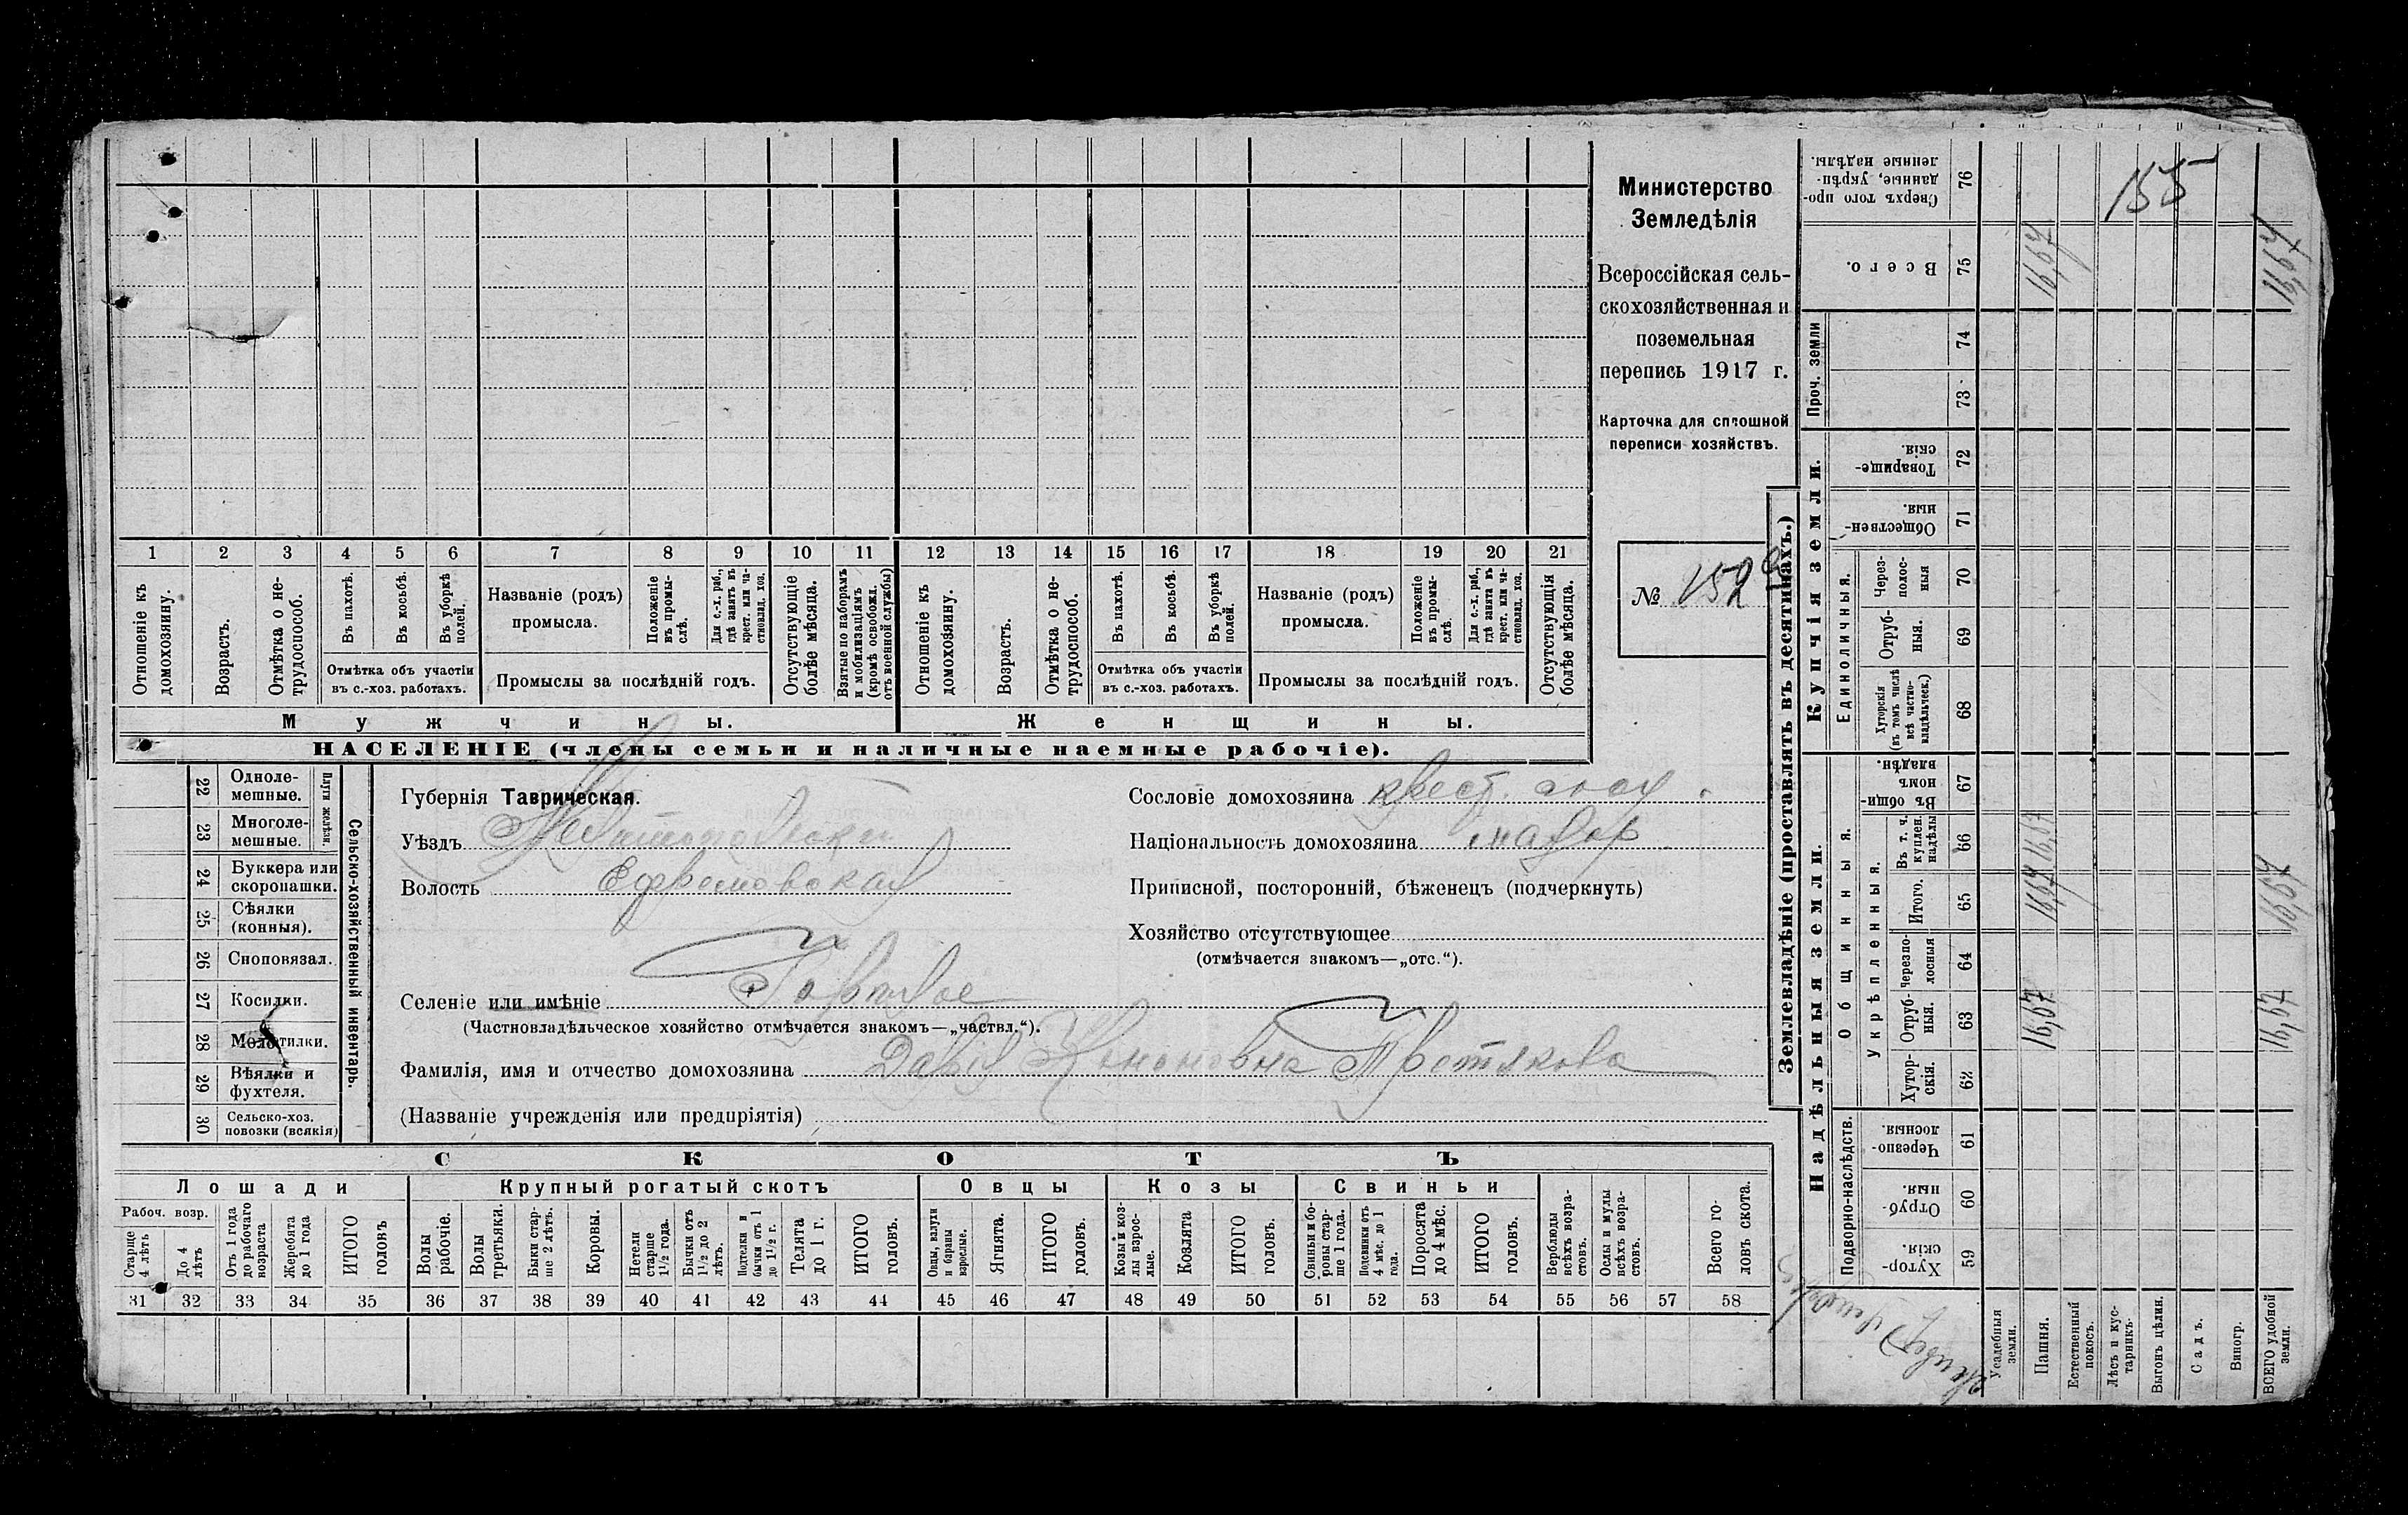 Министерство
Земледѣлія
Всероссійская сель-
скохозяйственная и
поземельная
перепись 1917 г.
Карточка для сплошной
переписи хозяйствъ.
№ 152
155
1 2 3 4 5 6 7 8 9 10 11 12 13 14 15 16 17 18 19 20 21
Отношеніе къ домохозяину.
Возрастъ.
Отмѣтка о не-трудоспособ.
Въ пахотѣ.
Въ косьбѣ.
Въ уборкѣ полей.
Отмѣтка объ участіи
въ с.-хоз. работахъ.
Названіе (родъ)
промысла.
Положеніе въ промы-слѣ.
Для с.-х. раб., гдѣ занятъ въ крест. или ча-стновлад. хоз.
Промыслы за послѣдній годъ.
Отсутствующіе болѣе мѣсяца.
Взятые по наборамъ и мобилизаціямъ (кромѣ освобожд. отъ военной службы)
Отношеніе къ домохозяину.
Возрастъ.
Отмѣтка о не-трудоспособ.
Въ пахотѣ.
Въ косьбѣ.
Въ уборкѣ полей.
Отмѣтка объ участіи
въ с.-хоз. работахъ.
Названіе (родъ)
промысла.
Положеніе въ промы-слѣ.
Для с.-х. раб., гдѣ занята въ крест. или ча-стновлад. хоз.
Промыслы за послѣдній годъ.
Отсутствующія болѣе мѣсяца.
Мужчины.
Женщины.
НАСЕЛЕНІЕ (члены семьи и наличные наемные рабочіе).
Сельско-хозяйственный инвентарь.
Плуги желѣзн.
22 Одноле-
мешные.
23 Многоле-
мешные.
24 Буккера или
скоропашки.
25 Сѣялки
(конныя).
26 Сноповязал.
27 Косилки.
28 Молотилки.
29 Вѣялки и
фухтеля.
30 Сельско-хоз.
повозки (всякія)
Губернія Таврическая.
Уѣздъ
Волость
Селеніе или имѣніе
(Частновладѣльческое хозяйство отмѣчается знакомъ—„частвл.“).
Фамилія, имя и отчество домохозяина Третякова
(Названіе учрежденія или предпріятія)
Сословіе домохозяина крест.
Національность домохозяина
Приписной, посторонній, бѣженецъ (подчеркнуть)
Хозяйство отсутствующее
(отмѣчается знакомъ—„отс.“).
СКОТЪ
Лошади
Рабоч. возр.
Старше 4 лѣтъ
До 4 лѣтъ
Отъ 1 года до рабочаго возраста
Жеребята до 1 года
ИТОГО головъ
Крупный рогатый скотъ
Волы рабочіе.
Волы третьяки.
Быки стар-ше 2 лѣтъ.
Коровы.
Нетели старше 1½ года.
Бычки отъ 1½ до 2 лѣтъ.
Подтелки и бычки отъ 1 до 1½ г.
Телята до 1 г.
ИТОГО головъ.
Овцы
Овцы, валухи и бараны взрослые.
Ягнята.
ИТОГО головъ.
Козы
Козы и коз-лы взрос-лые.
Козлята
ИТОГО головъ.
Свиньи
Свиньи и бо-ровы стар-ше 1 года.
Подсвинки отъ 4 мѣс. до 1 года.
Поросята до 4 мѣс.
ИТОГО головъ.
Верблюды всѣхъ возра-стовъ.
Ослы и мулы всѣхъ возра-стовъ.
Всего го-ловъ скота.
31 32 33 34 35 36 37 38 39 40 41 42 43 44 45 46 47 48 49 50 51 52 53 54 55 56 57 58
Землевладѣніе (проставлять въ десятинахъ.)
Надѣльныя земли.
Подворно-наслѣдств.
Хутор-скія. 59
Отруб-ныя. 60
Черезпо-лосныя. 61
Общинныя.
Укрѣпленныя.
Хутор-скія. 62
Отруб-ныя. 63
Черезпо-лосныя 64
Итого. 65
Въ т. ч. куплен. надѣлы 66
Въ общи-номъ владѣн. 67
Купчія земли.
Единоличныя.
Хуторскія (въ томъ числѣ всѣ частно-владѣльческ.) 68
Отруб-ныя. 69
Через-полос-ныя 70
Обществен-ныя. 71
Товарище-скія 72
Проч. земли
73
74
Всего. 75
Сверхъ того про-данные, укрѣп-ленные надѣлы. 76
Усадебныя земли.
Пашня. 16,67 16,67 16,67 16,67
Естественный покосъ.
Лѣсъ и кус-тарникъ.
Выгонъ цѣлин.
Садъ.
Виногр.
ВСЕГО удобной земли. 16,67 16,67 16,67